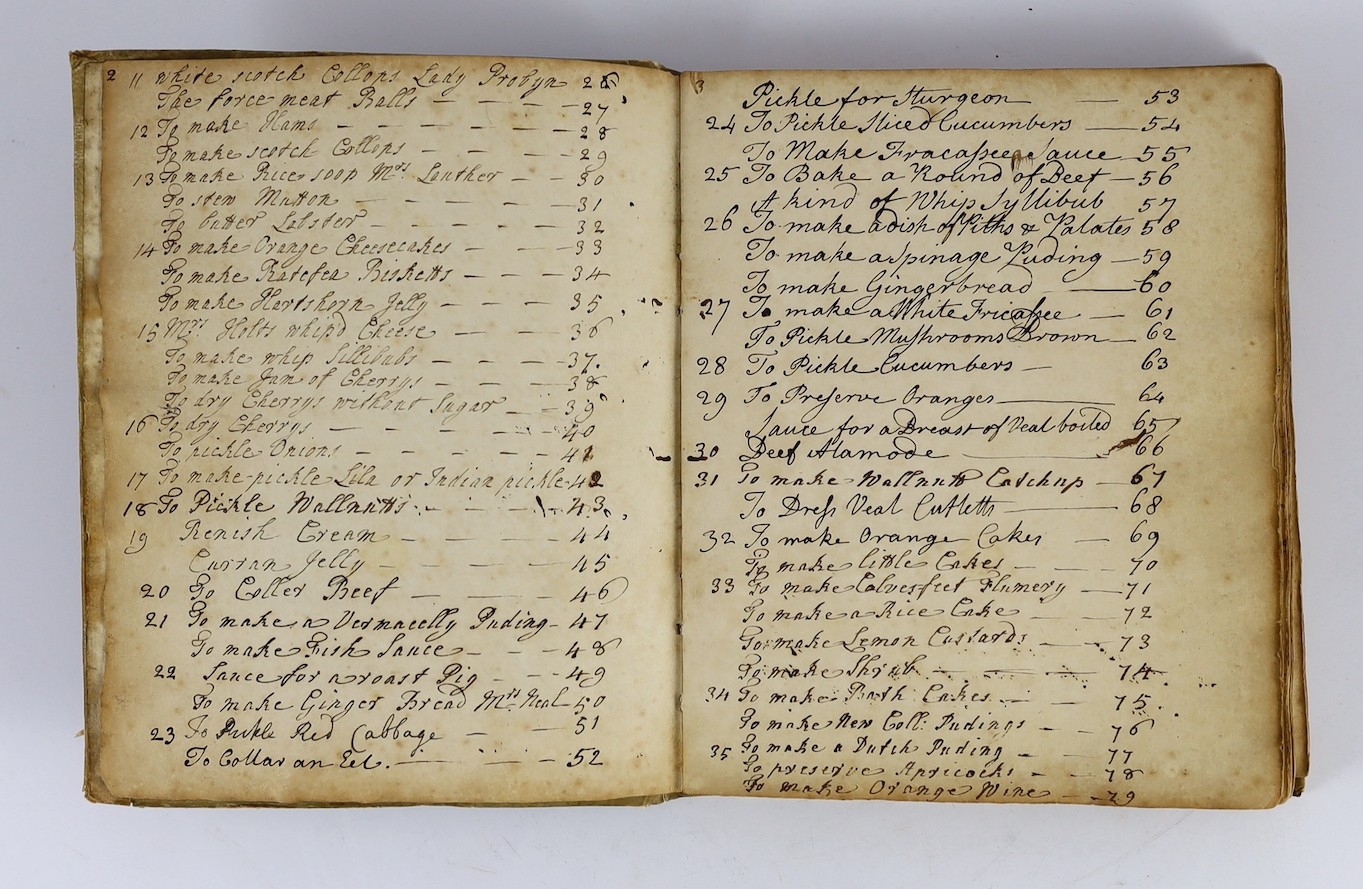 2
11 white scotch Collops Lady Probyn 26
The force meat Balls — — — — 27
12 To make Hams — — — — — — 28
To make scotch Collops — — — — 29
13 To make Rice soop Mrs. Lauther — — 30
To stew Mutton — — — — — 31
To butter Lobster — — — — — 32
14 To make Orange Cheesecakes — — — 33
To make Ratefea Bisketts — — — 34
To make Hartshorn Jelly — — — 35
15 Mrs Holts whip'd Cheese — — — 36
To make whip Sillibubs — — — 37.
To make Jam of Cherrys — — — 38
To dry Cherrys without Sugar — — 39
16 To dry Cherrys — — — — 40
To pickle Onions — — — — — 41
17 To make pickle Lila or Indian pickle 42
18 To Pickle Wallnutts — — 43
19 Renish Cream — — — — 44
Curran Jelly — — — — 45
20 To Coller Beef — — — — 46
21 To make a Vermacelly Puding — 47
To make Fish Sauce — — — 48
22 Sauce for a roast Pig — — 49
To make Ginger Bread Mrs. Neal 50
23 To Pickle Red Cabbage — — 51
To Collar an Eel. — — — 52
3
Pickle for Sturgeon — — 53
24 To Pickle Sliced Cucumbers — 54
To Make Fracaſsee Sauce — 55
25 To Bake a Round of Beef — 56
A kind of Whip Syllibub 57
26 To make a dish of Piths & Palates 58
To make a spinage Puding — 59
To make Gingerbread — 60
27 To make a White Fricaſsee — 61
To Pickle Muſhrooms Brown — 62
28 To Pickle Cucumbers — 63
29 To Preserve Oranges — 64
Sauce for a Breast of Veal boiled 65
30 Beef Alamode — 66
31 To make Wallnutt Catchup — 67
To Dreſs Veal Cutletts — 68
32 To make Orange Cakes — 69
To make little Cakes — — — 70
33 To make Calvesfeet Flumery — 71
To make a Rice Cake — — — 72
To make Lemon Custards — — 73
To make Shrub — — — — 74
34 To make Bath Cakes — — 75.
To make New Coll: Pudings — — 76
35 To make a Dutch Puding — — 77
To preserve Apricocks — — 78
To make Orange Wine — — 79